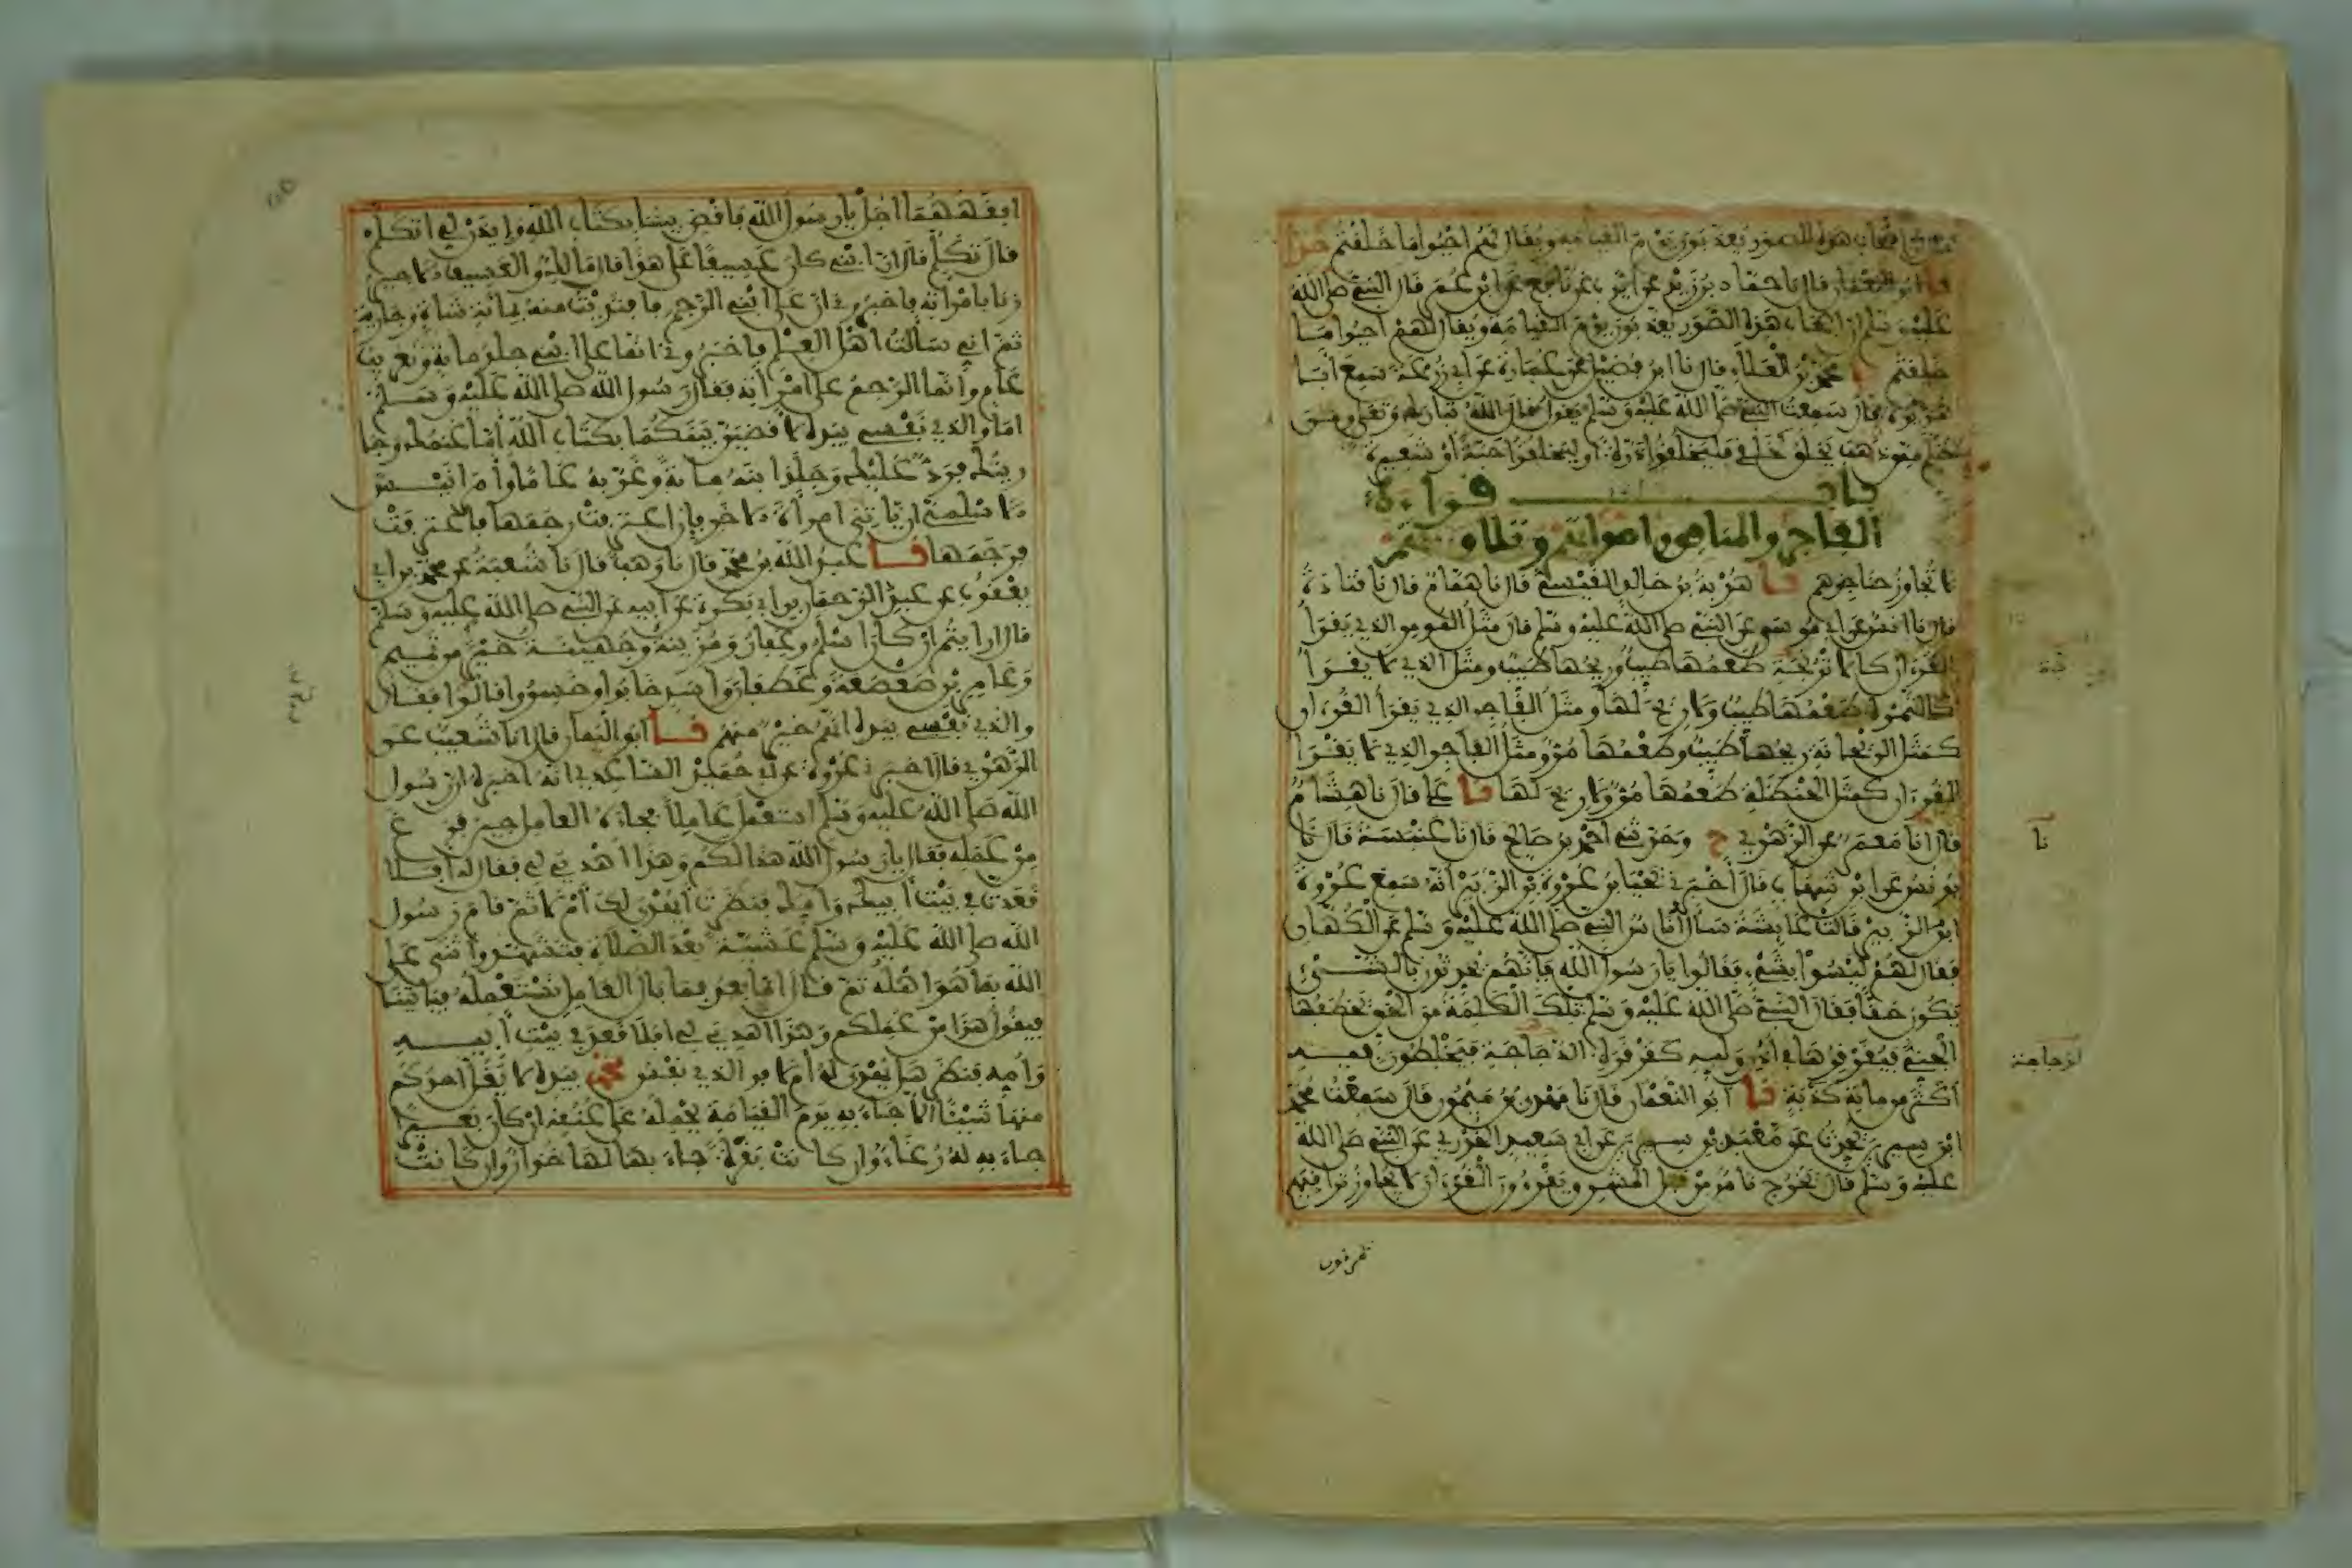 اصحاب هذه الصور يعذبون يوم القيامه ويقال لهم احيوا ما خلقتم حدثنا
ابو النعمان قال نا حماد بن زيد عن ايوب عن نافع عن ابن عمر قال النبي صلى الله
عليه وسلم ان اصحاب هذه الصور يعذبون يوم القيامه ويقال لهم احيوا ما
خلقتم محمد بن العلاء قال نا ابن فضيل عن عمارة عن ابي زرعة سمع ابا
هريرة قال سمعت النبي صلى الله عليه وسلم يقول قال الله تبارك وتعلى ومن
اظلم ممن ذهب يخلق كخلقي فليخلقوا ذرة او ليخلقوا حبة او شعيرة
باب قراءة
الفاجر والمنافق واصواتهم وتلاوتهم
لا تجاوز حناجرهم نا هدبة بن خالد القيسي قال نا همام قال نا قتادة
قال نا انس عن ابي موسى عن النبي صلى الله عليه وسلم قال مثل المومن الذي يقرأ
القرءان كالاترجة طعمها طيب وريحها طيب ومثل الذي لا يقرأ
كالتمرة طعمها طيب ولا ريح لها ومثل الفاجر الذي يقرأ القرءان
كمثل الريحانة ريحها طيب وطعمها مر ومثل الفاجر الذي لا يقرأ
القرءان كمثل الحنظلة طعمها مر ولا ريح لها نا علي قال نا هشام
قال انا معمر عن الزهري ح وحدثني احمد بن صالح قال نا عنبسة قال نا
يونس عن ابن شهاب قال أخبرني يحيى بن عروة بن الزبير انه سمع عروة
ابن الزبير قالت عايشة سأل أناس النبي صلى الله عليه وسلم عن الكهان
فقال لهم ليسوا بشيء فقالوا يا رسول الله فإنهم يحدثون بالشيء
يكون حقا فقال النبي صلى الله عليه وسلم تلك الكلمة من الحق يخطفها
الجني فيقرقرها في أذن وليه كقرقرة الدجاجة فيخلطون فيه
أكثر من ماية كذبة نا أبو النعمان قال نا مهدي بن ميمون قال سمعت محمد
ابن سيرين يحدث عن معبد بن سيرين عن ابي سعيد الخدري عن النبي صلى الله
عليه وسلم قال يخرج ناس من قبل المشرق ويقرءون القرءان لا يجاوز تراقيهم
نا
الزجاجة
يمرقون
افقههما اجل يا رسول الله فاقض بيننا بكتاب الله وايذن لي اتكلم
قال تكلم قال ان ابني كان عسيفا على هذا قال مالك والعسيف الاجير
زنا بامراته فاخبروني ان على ابني الرجم فافتديت منه بماية شاة وجارية
ثم اني سألت أهل العلم فاخبروني انما على ابني جلد ماية وتغريب
عام وأنما الرجم على امرأته فقال رسول الله صلى الله عليه وسلم
اما والذي نفسي بيده لاقضين بينكما بكتاب الله أما غنمك وجا
ريتك فرد عليك وجلد ابنه ماية وغربه عاما وأمر انيس
الاسلمي ان ياتي امرأة الاخر فإن اعترفت رجمها فاعترفت
فرجمها نا عبد الله بن محمد قال نا وهب قال نا شعبة عن محمد بن ابي
يعقوب عن عبد الرحمان بن ابي بكرة عن ابيه عن النبي صلى الله عليه وسلم
قال ارايتم ان كان اسلم وغفار ومزينة وجهينة خير من تميم
وعامر بن صعصعة وغطفان واسد خابوا وخسروا قالوا فقال
والذي نفسي بيده انتم خير منهم نا ابو اليمان قال انا شعيب عن
الزهري قال اخبرني عروة عن ابي حميد الساعدي انه اخبره ان رسول
الله صلى الله عليه وسلم استعمل عاملا فجاءه العامل حين فرغ
من عمله فقال يا رسول الله هذا لكم وهذا أهدي لي فقال له افلا
قعدت في بيت أبيك وأمك فنظرت أيهدى لك أم لا ثم قام رسول
الله صلى الله عليه وسلم عشية بعد الصلاة فتشهد واثنى على
الله بما هو اهله ثم قال اما بعد فما بال العامل نستعمله فياتينا
فيقول هذا من عملكم وهذا اهدي لي افلا قعد في بيت أبيه
وأمه فنظر هل يهدى له أم لا فو الذي نفس محمد بيده لا يغل احدكم
منها شيئا الا جاء به يوم القيامة يحمله على عنقه ان كان بعيرا
جاء به له رغاء وان كانت بقرة جاء بها لها خوار وان كانت